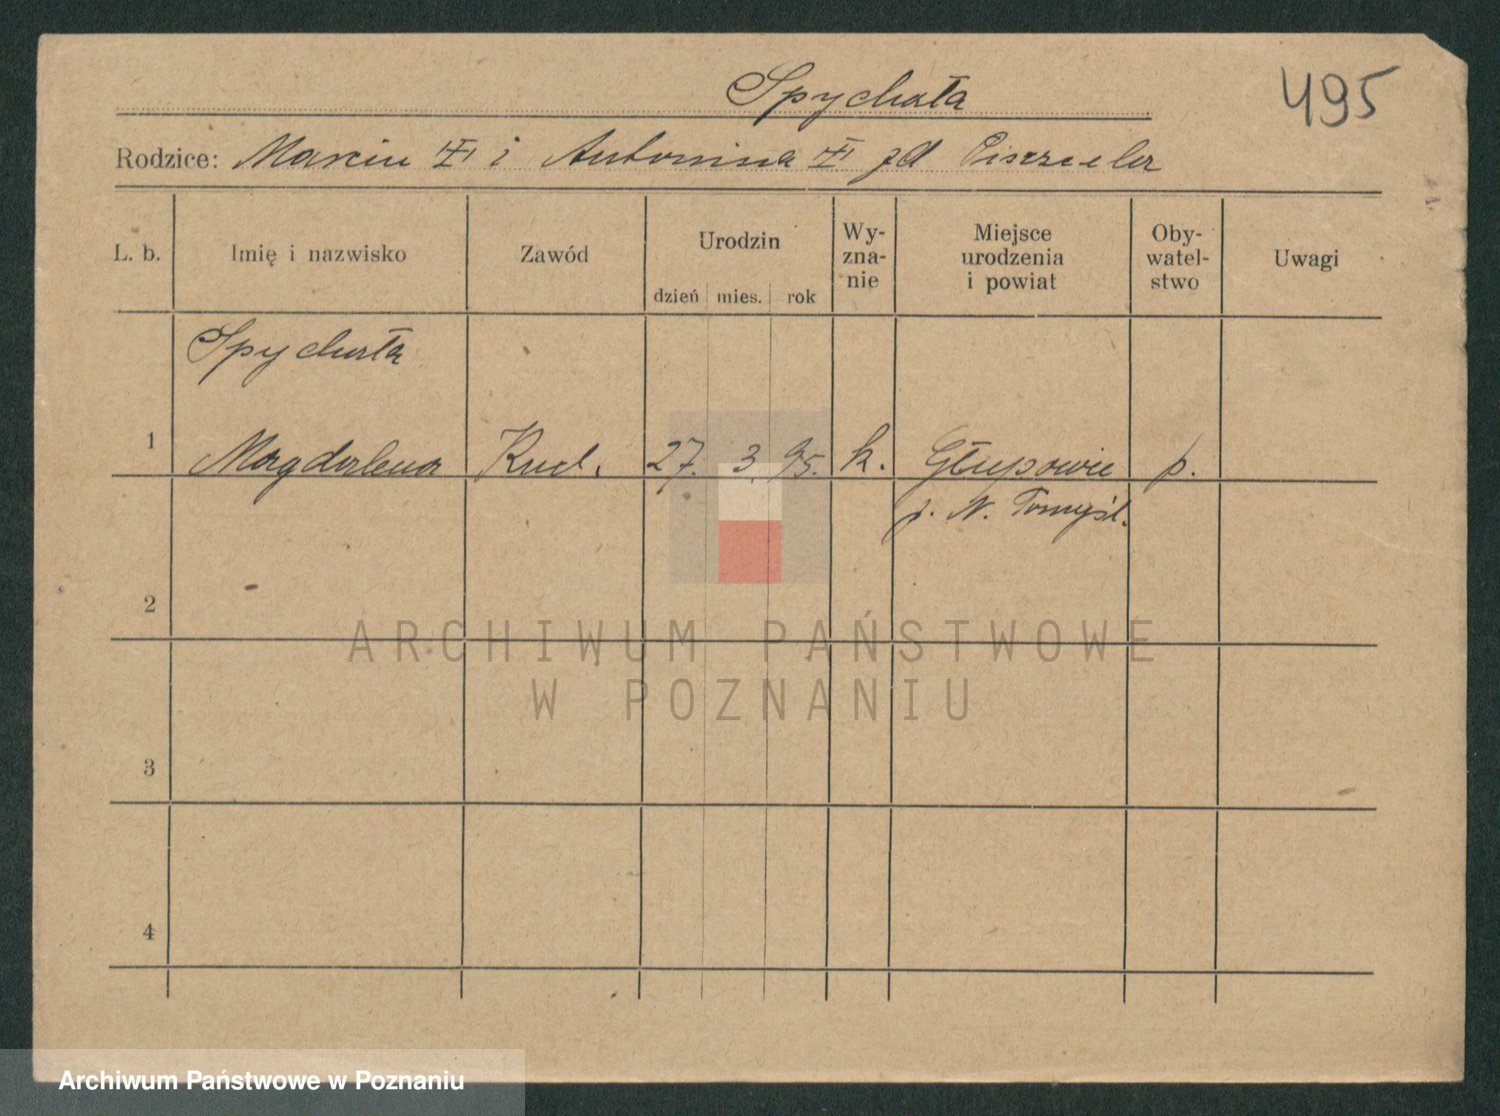 Spychała
495
Rodzice: Marcin i Antonina zd
L. b. Imię i nazwisko Zawód Urodzin dzień mies. rok Wy-zna-nie Miejsce urodzenia i powiat Oby-watel-stwo Uwagi
Spychała
1 Magdalena 27. 3. 95. k. Głuponie p.
p. N. Tomyśl.
2
3
4
ARCHIWUM PAŃSTWOWE
W POZNANIU
Archiwum Państwowe w Poznaniu